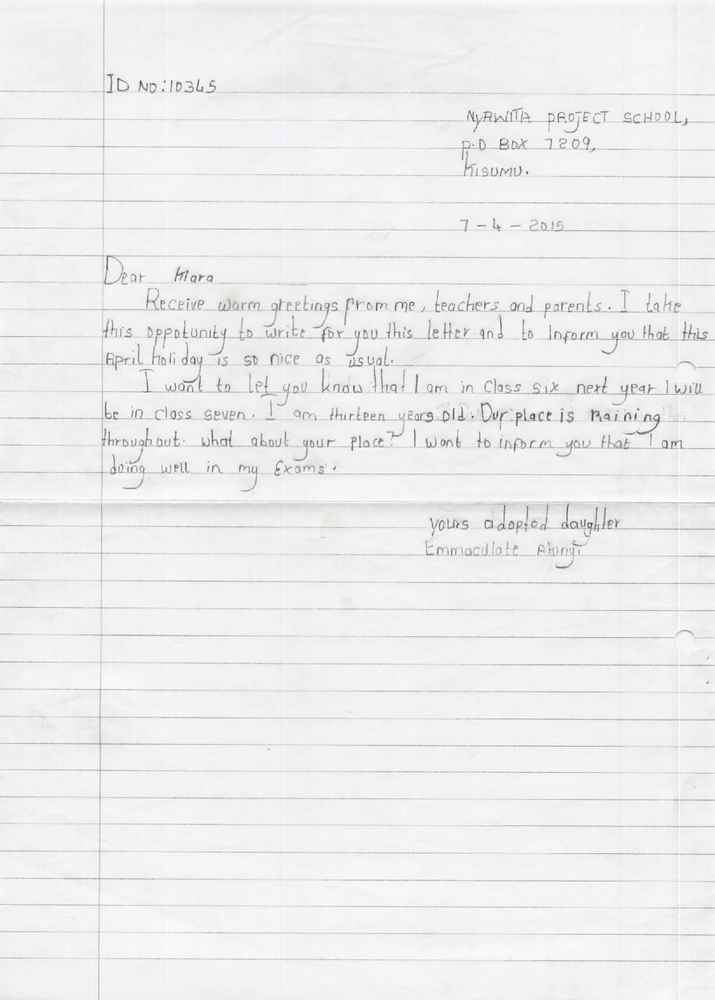 ID NO:10345
NYAWITA PROJECT SCHOOL,
P.O BOX 7209,
KISUMU.
7-4-2015
Dear Klara
Receive warm greetings from me, teachers and parents. I take
this oppotunity to write for you this letter and to inform you that this
April holiday is so nice as usual.
I want to let you know that I am in class six next year I will
be in class seven. I am thirteen years old. Our place is raining
throughout. what about your place? I want to inform you that I am
doing well in my Exams.
yours adopted daughter
Emmaculate Akinyi